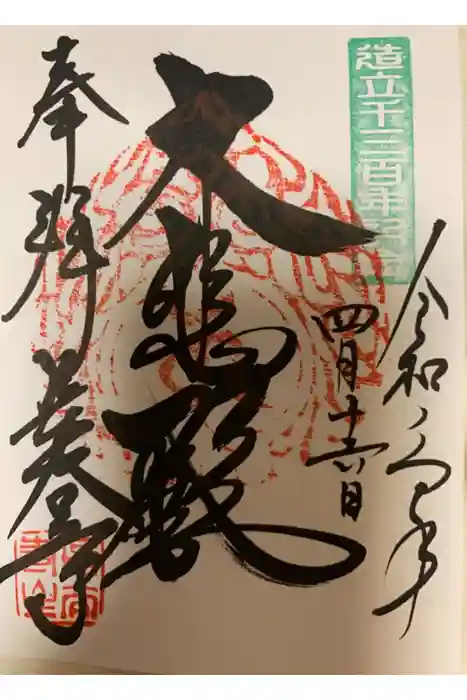 造立千三百年
令和
四月十六日
大悲殿
奉拝 長谷寺